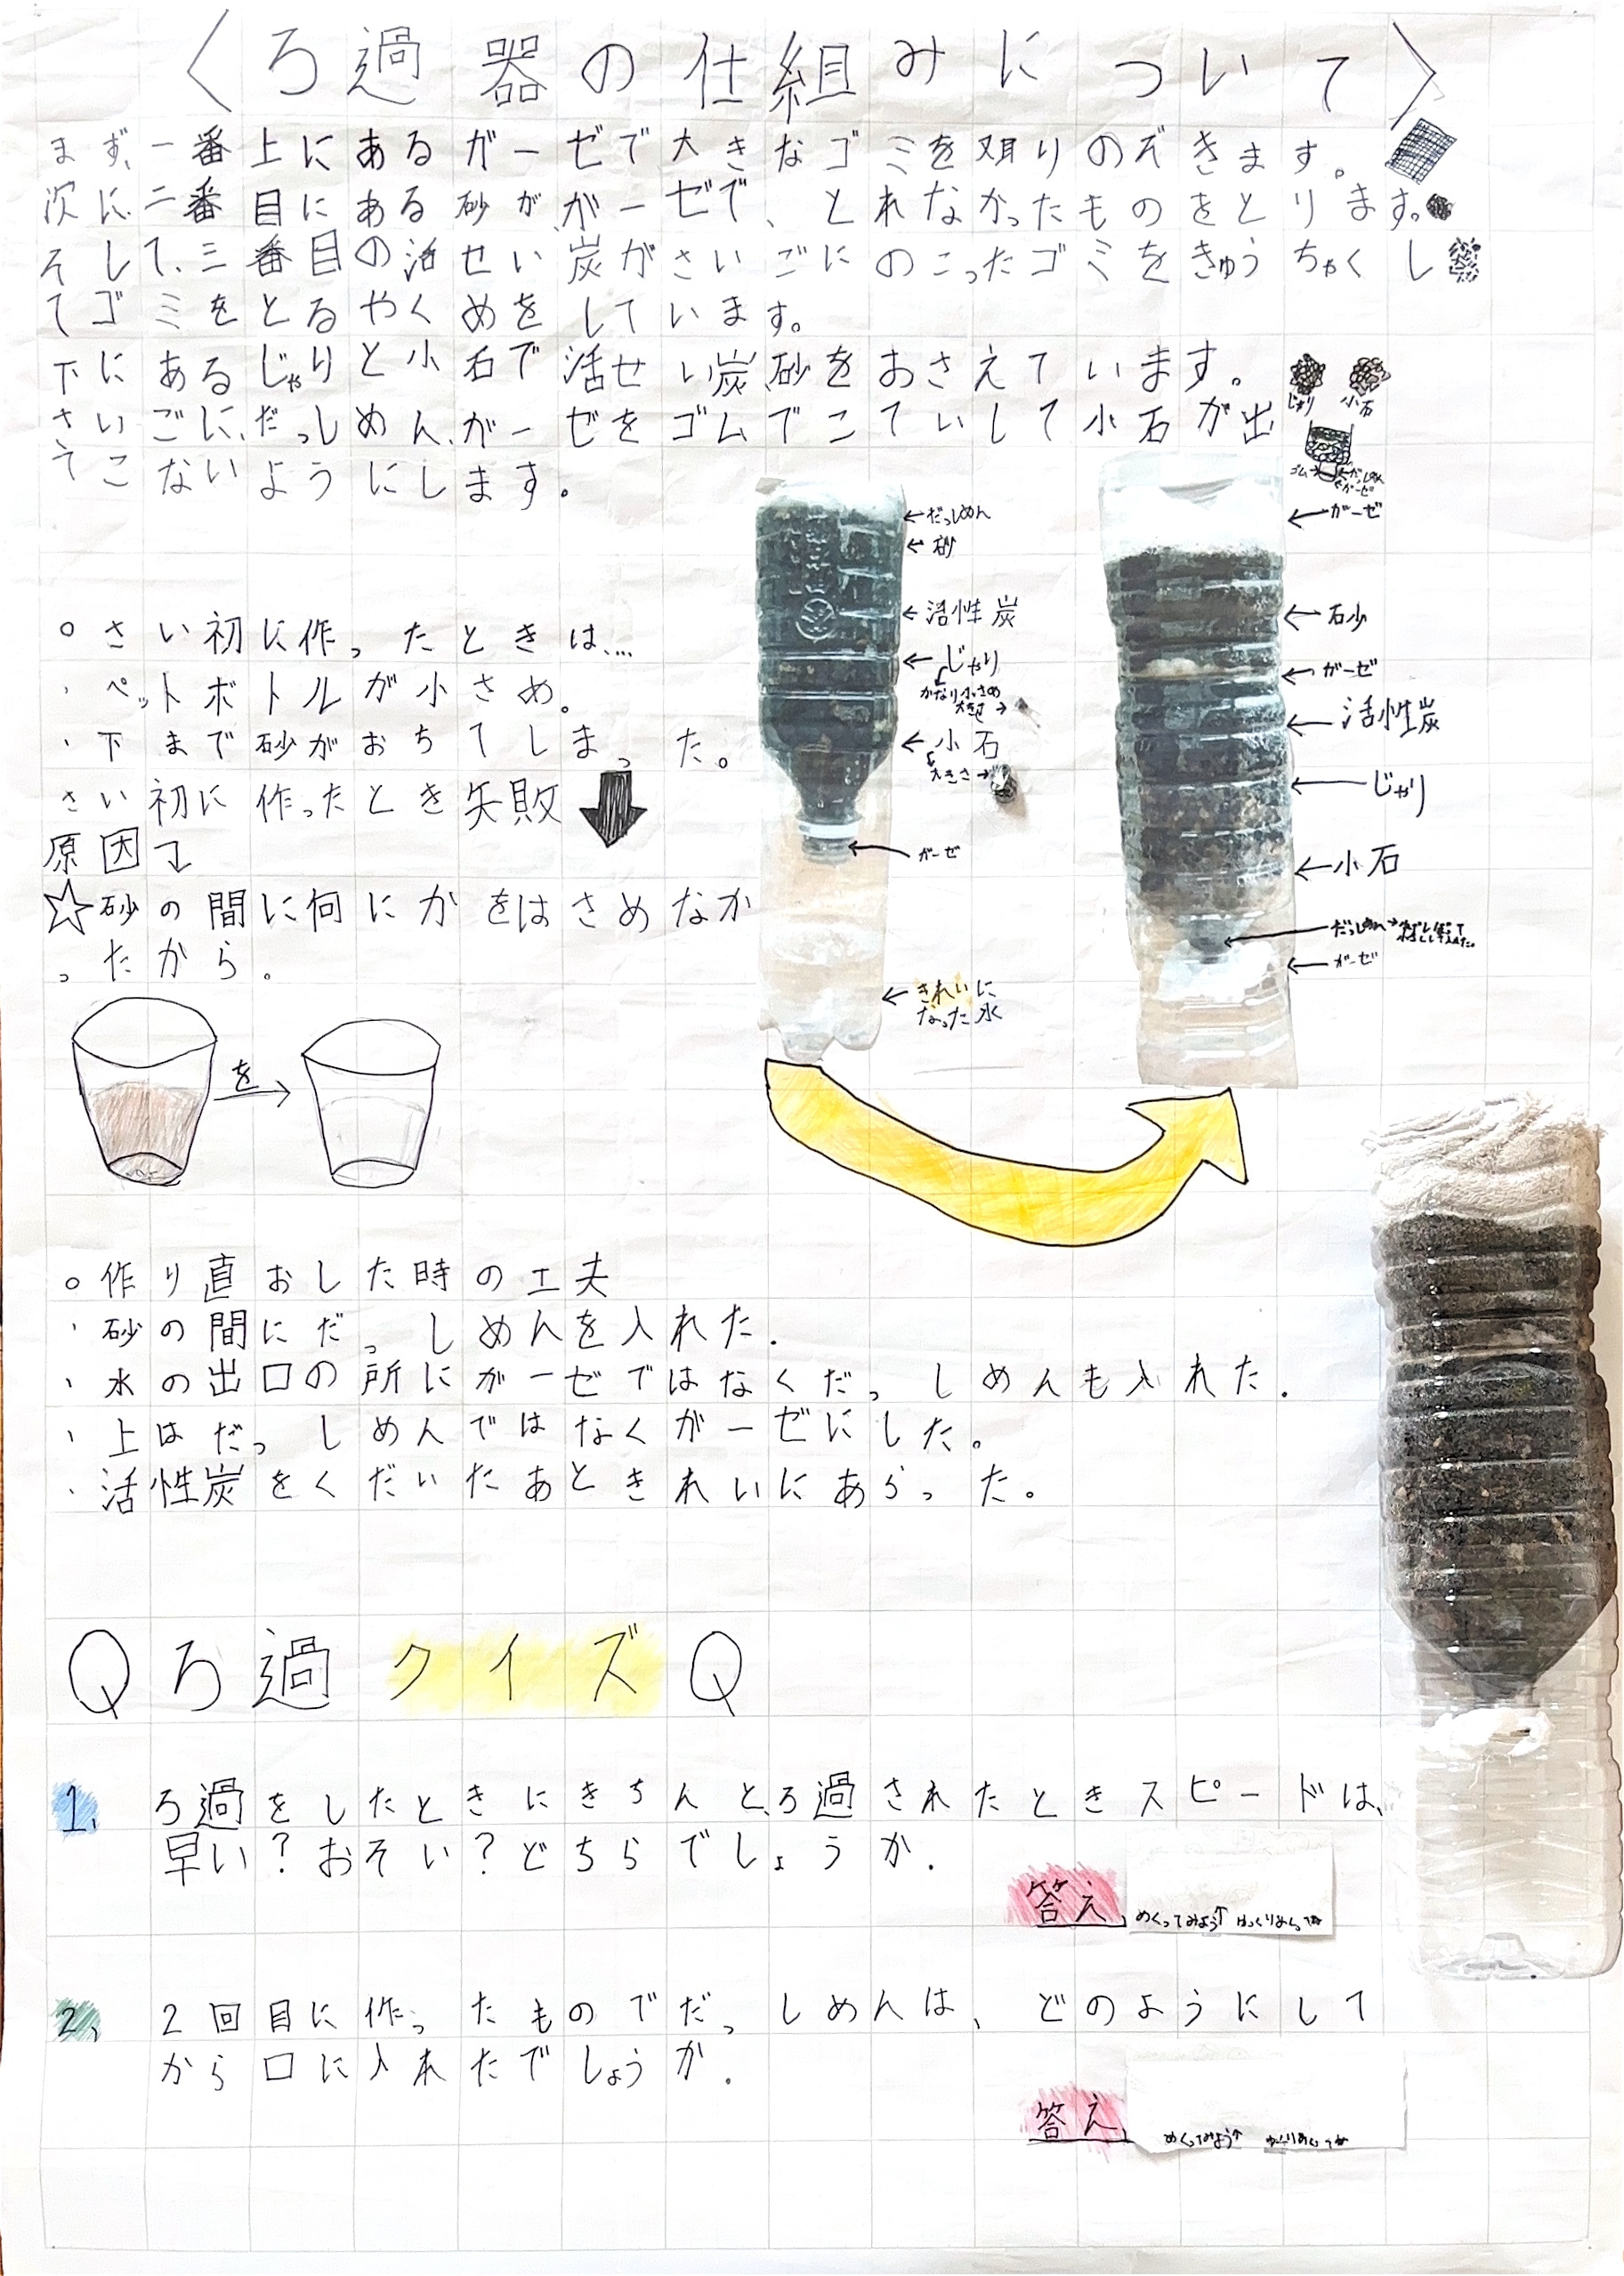 〈ろ過器の仕組みについて〉
まず、一番上にあるガーゼで大きなゴミを取りのぞきます。
次に、二番目にある砂が、ガーゼで、とれなかったものをとります。
そして、三番目の活せい炭がさいごにのこったゴミをきゅうちゃくし
てゴミをとるやくめをしています。
下にあるじゃりと小石で活せい炭、砂をおさえています。
じゃり
小石
さいごに、だっしめん、ガーゼをゴムでこていして小石が出
てこないようにします。
ゴム→
←だっしめん
←ガーゼ
←だっしめん
←砂
←活性炭
←じゃり
かなり小さめ
大きさ→
←小石
大きさ→
←ガーゼ
←きれいに
なった水
←ガーゼ
←砂
←ガーゼ
←活性炭
←じゃり
←小石
←だっしめん→
←ガーゼ
○さい初に作ったときは…
・ペットボトルが小さめ。
・下まで砂がおちてしまった。
さい初に作ったとき失敗
原因
☆砂の間に何にかをはさめなか
ったから。
を→
○作り直おした時の工夫
・砂の間にだっしめんを入れた.
・水の出口の所にガーゼではなくだっしめんも入れた.
・上はだっしめんではなくガーゼにした。
・活性炭をくだいたあときれいにあらった。
Qろ過クイズQ
1. ろ過をしたときにきちんと、ろ過されたときスピードは、
早い?おそい?どちらでしょうか.
答え
めくってみよう↑
2. 2回目に作ったものでだっしめんは、どのようにして
から口に入れたでしょうか.
答え
めくってみよう↑